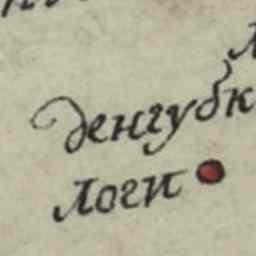 денгубк
логи